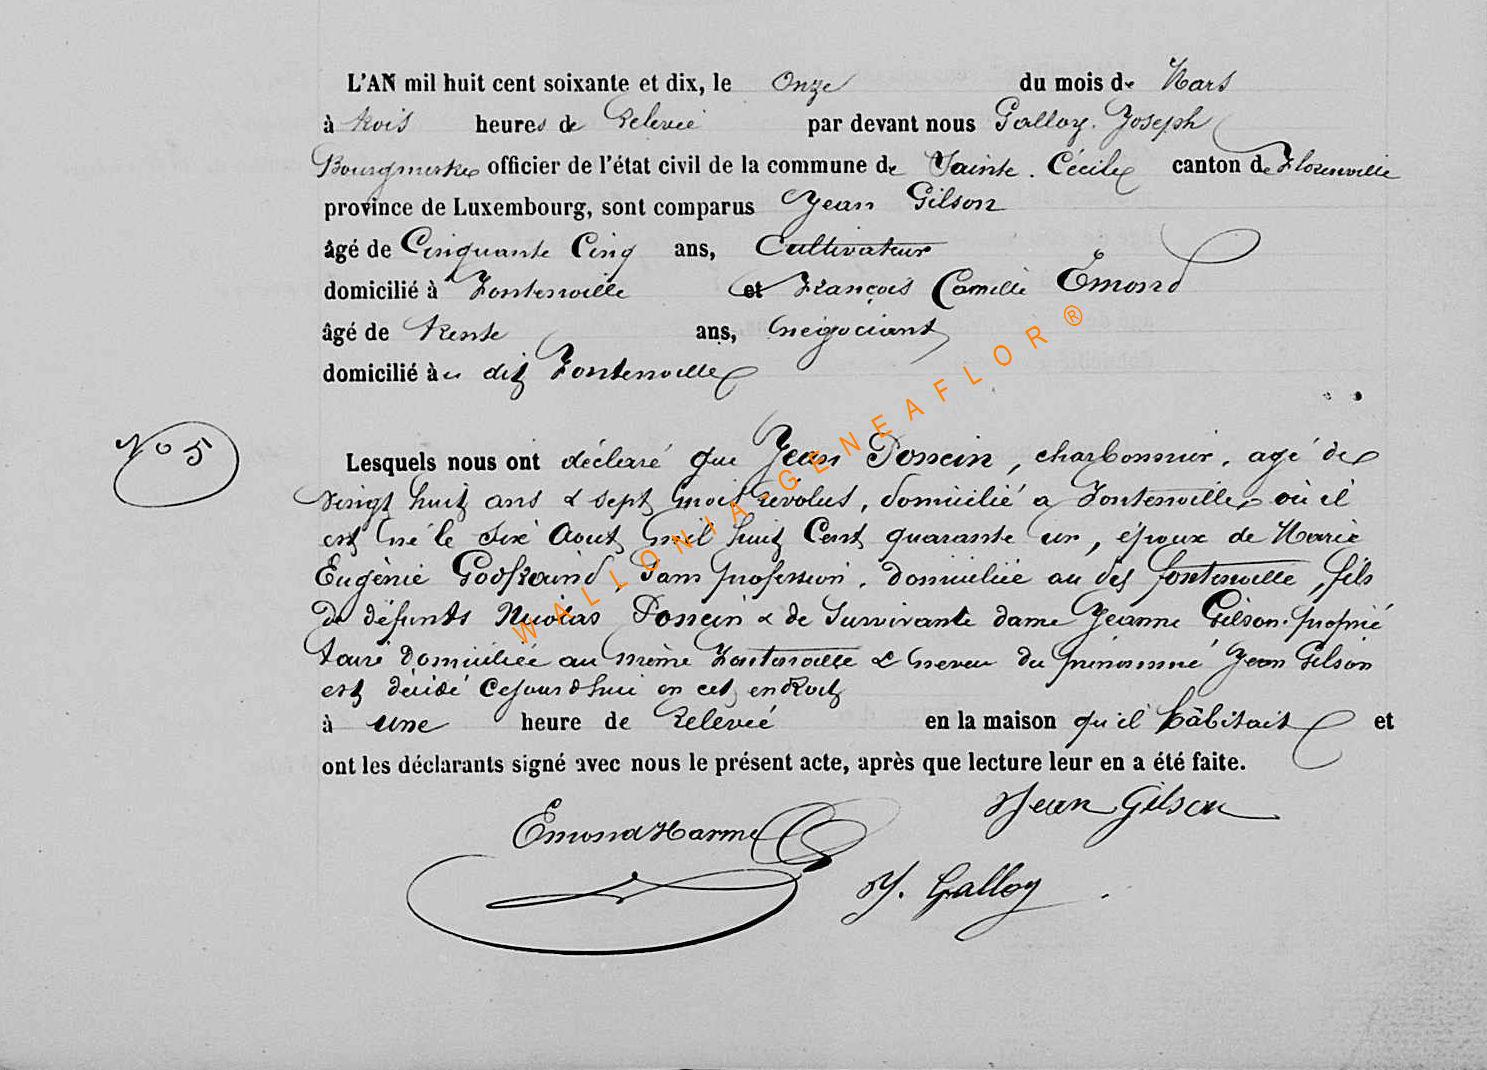 L'AN mil huit cent soixante et dix, le Onze du mois de Mars
à trois heures de Relevée par devant nous Galloy Joseph
Bourgmestre officier de l'état civil de la commune de Sainte Cécile canton de Florenville
province de Luxembourg, sont comparus Jean Gilson
âgé de Cinquante Cinq ans, Cultivateur
domicilié à Fontenoille et François Camille Emond
âgé de trente ans, négociant
domicilié à u dit Fontenoille
N° 5
Lesquels nous ont déclaré que Jean Poncin, charbonnier, agé de
vingt huit ans & sept mois révolus, domicilié a Fontenoille où il
est né le six Aout mil huit Cent quarante un, époux de Marie
Eugènie Godfraind, Sans profession, domiciliée au dit fontenoille, fils
de défunts Nicolas Poncin & de Survivante dame Jeanne Gilson proprié
taire domiciliée au même Fontenoille & neveu du prénommé Jean Gilson
est décédé Cejourd'hui en cet endroit
à une heure de Relevée en la maison qu'il hâbitait et
ont les déclarants signé avec nous le présent acte, après que lecture leur en a été faite.
Jean Gilson
Emond Harmel
J. Galloy
WALLONIA-GENEAFLOR®